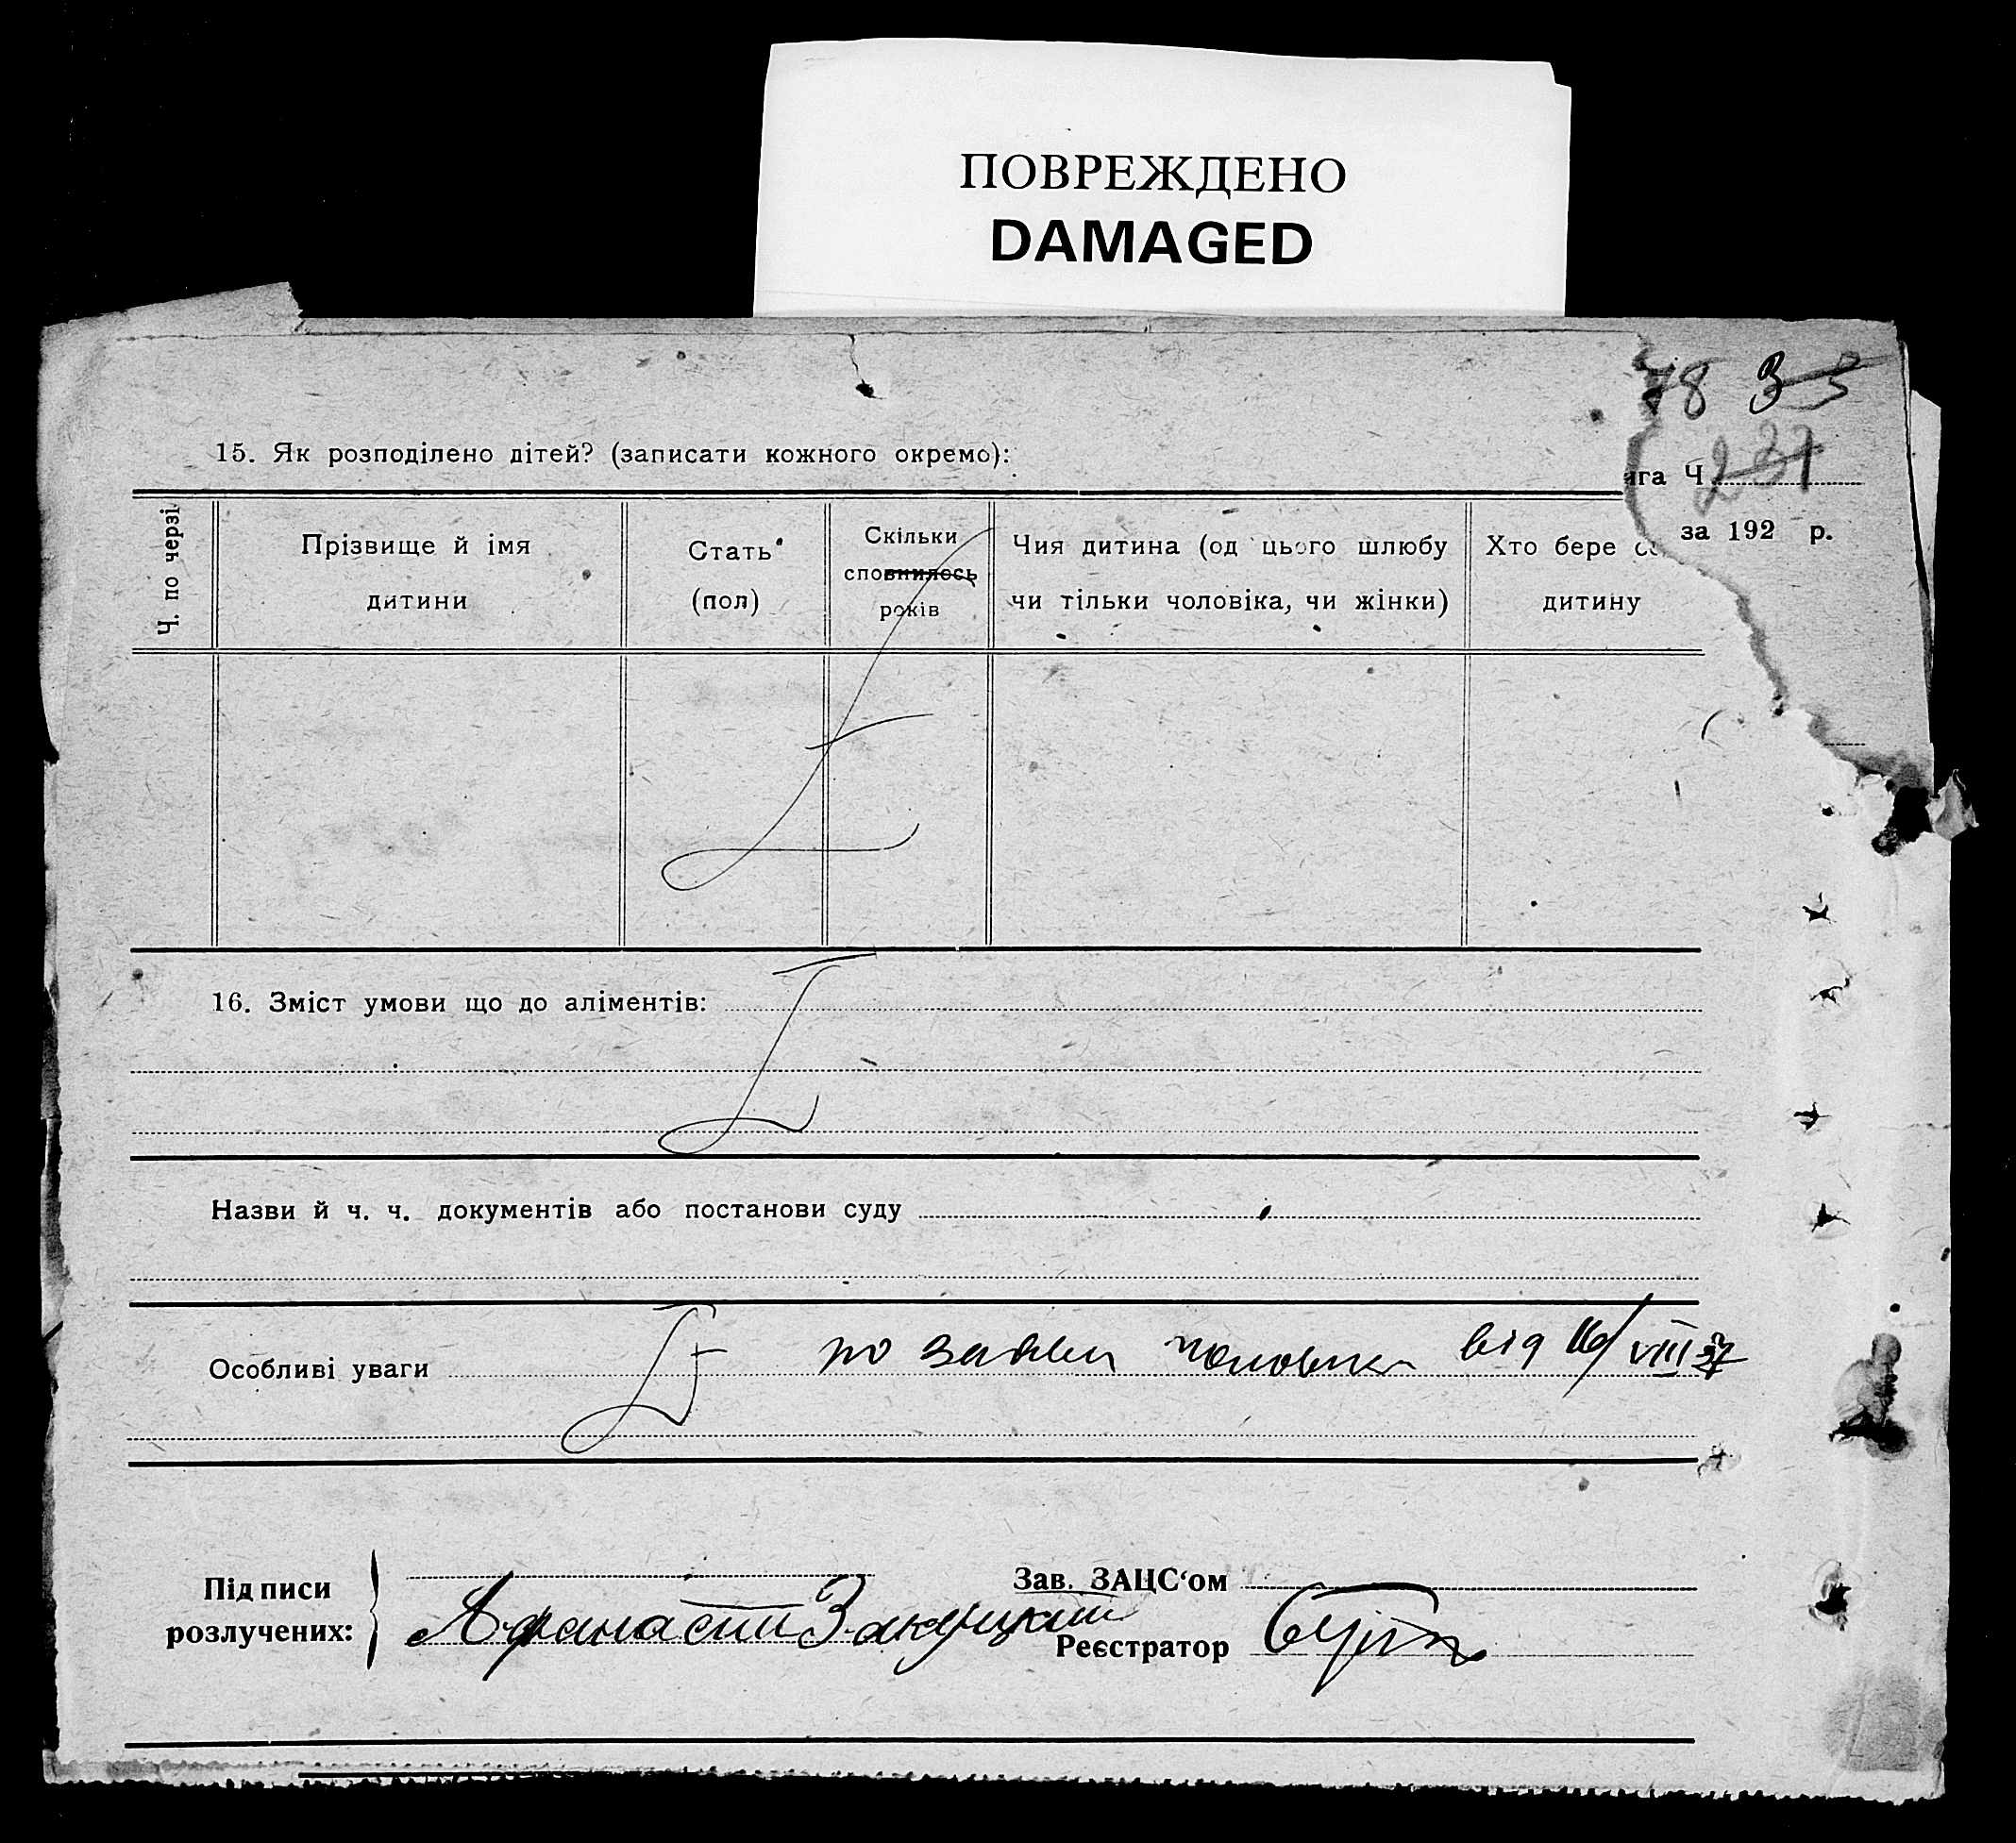 ПОВРЕЖДЕНО
DAMAGED
78 33
15. Як розподілено дітей? (записати кожного окремо):
ига Ч. 237
за 192 р.
Ч. по черзі
Прізвище й імя дитини
Стать (пол)
Скільки сповнилось років
Чия дитина (од цього шлюбу чи тільки чоловіка, чи жінки)
Хто бере се дитину
16. Зміст умови що до аліментів:
Назви й ч. ч. документів або постанови суду
Особливі уваги по заяви чоловика від 16/VIII 27
Підписи розлучених:
Афанасти Закуцкий
Зав. ЗАЦС‘ом
Реєстратор